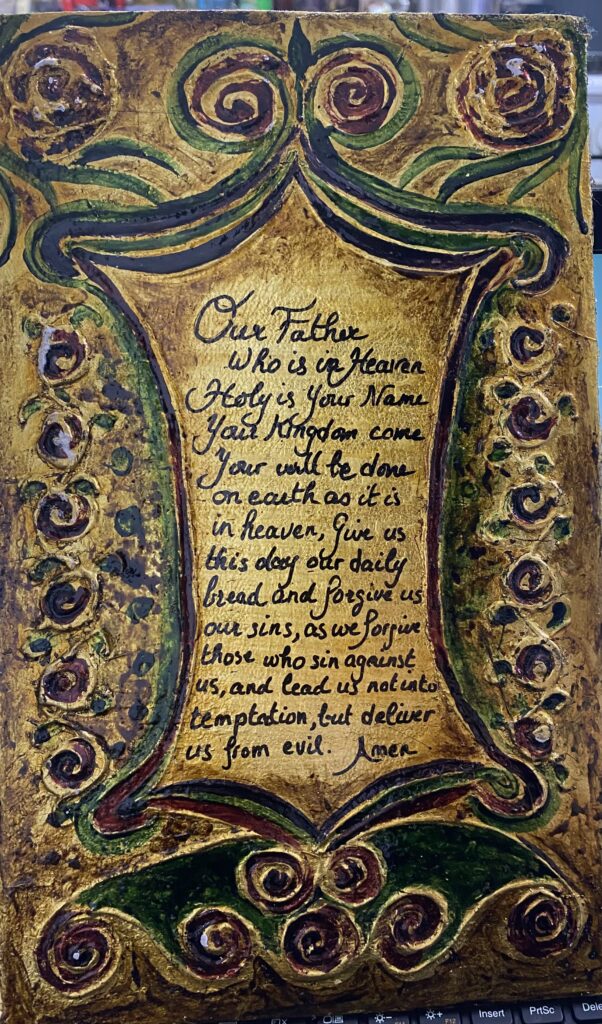 Our Father
Who is in Heaven
Holy is Your Name
Your Kingdom come
Your will be done
on earth as it is
in heaven, Give us
this day our daily
bread and forgive us
our sins, as we forgive
those who sin against
us, and lead us not into
temptation, but deliver
us from evil. Amen
F12 Insert PrtSc Dele